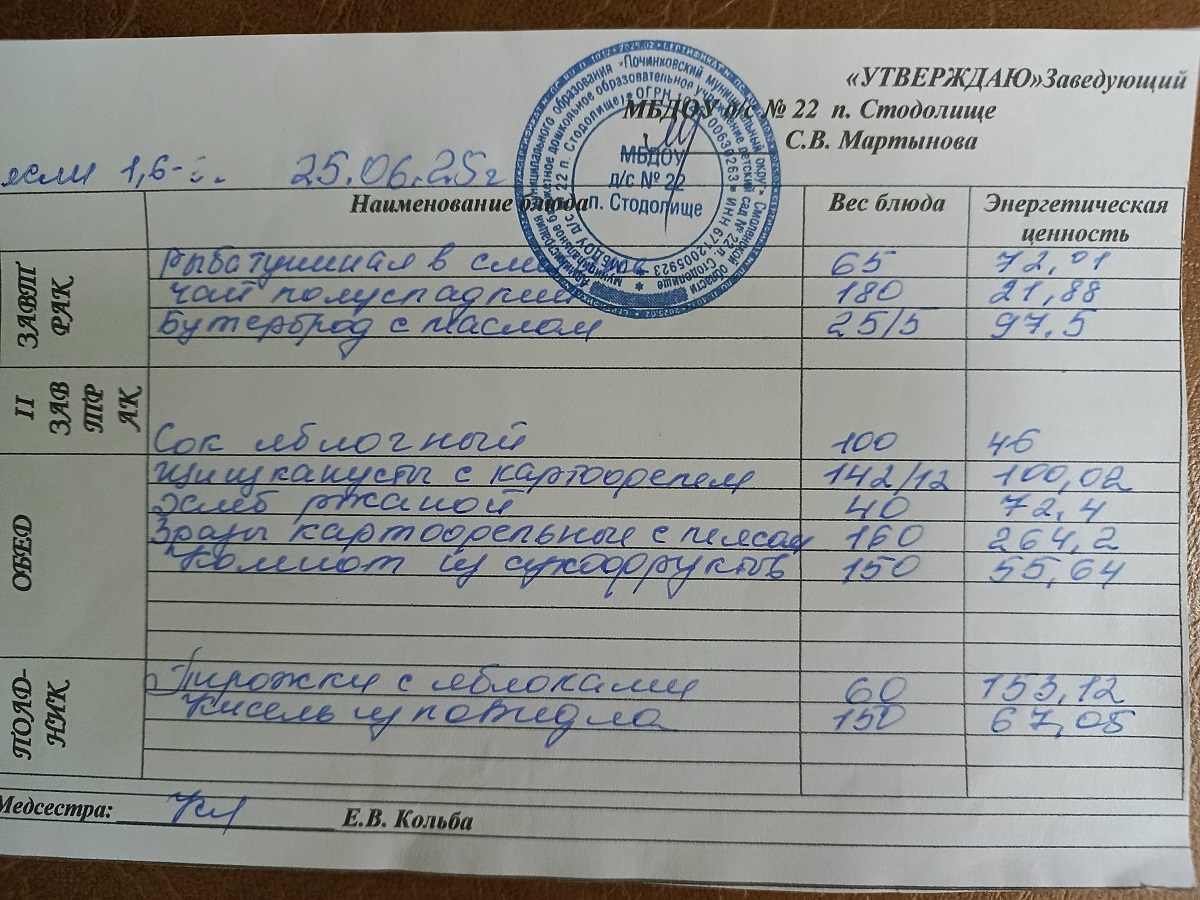 «УТВЕРЖДАЮ»Заведующий
МБДОУ д/с № 22 п. Стодолище
С.В. Мартынова
МБДОУ
д/с № 22
п. Стодолище
ясли 1,6- 25.06.25г
Наименование блюда Вес блюда Энергетическая ценность
ЗАВТРАК
Рыба тушиная в 65 72,01
Чай полусладкий 180 21,88
Бутерброд с маслом 25/5 97.5
II ЗАВТРАК
Сок яблочный 100 46
ОБЕД
Щи из капусты с картофелем 142/12 100,02
Хлеб ржаной 40 72,4
Зразы картофельные с мясом 160 264,2
Компот из сухофруктов 150 55,64
ПОЛДНИК
Пирожки с яблоками 60 153,12
Кисель из повидла 150 67,05
Медсестра: Е.В. Кольба